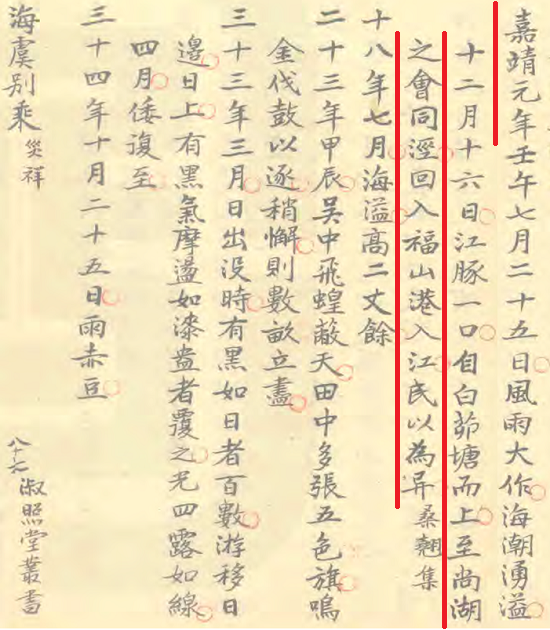 嘉靖元年壬午七月二十五日風雨大作海潮湧溢
十二月十六日江豚一口自白茆塘而上至尚湖
之會同涇回入福山港入江民以為异桑翹集
十八年七月海溢髙二丈餘
二十三年甲辰吳中飛蝗蔽天田中多張五色旗鳴
金伐鼓以逐稍懈則數畝立盡
三十三年三月日出没時有黑如日者百數游移日
邊日上有黑氣摩盪如漆盎者覆之光四露如線
四月倭復至
三十四年十月二十五日雨赤豆
海虞别乘 災祥
淑照堂叢書